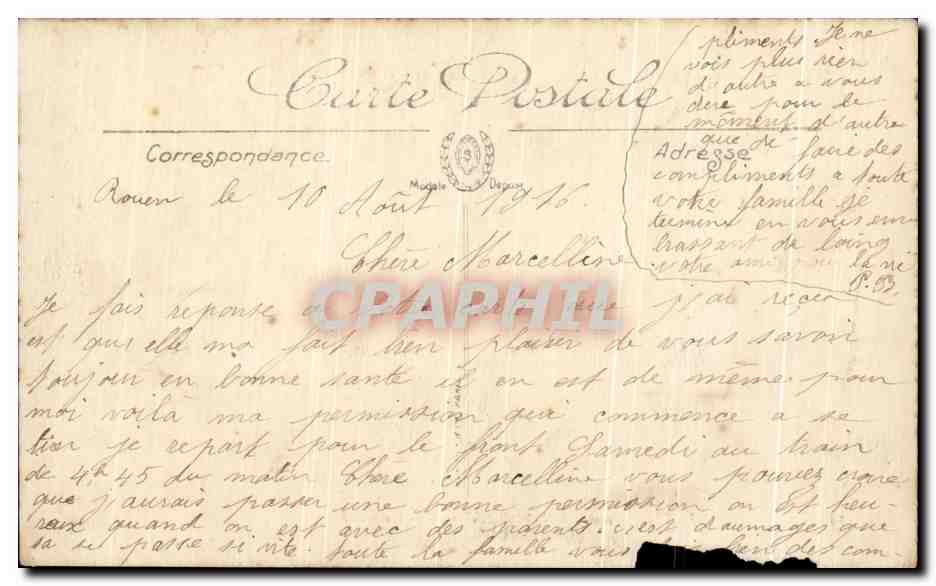 Carte Postale
Correspondance
Adresse
Modèle Déposé
Rouen le 10 Août 1916
Chère Marcelline
Je fais réponse a votre carte que j'jai reçu
est qui elle ma fait bien plaisir de vous savoir
toujour en bonne santé il en est de même pour
moi voilà ma permission qui commence a se
tirer je repart pour le front Samedi au train
de 4h 45 du matin Chère Marcelline vous pouvez croire
que j'aurais passer une bonne permission on est heu-
reux quand on est avec des parents. c'est daumages que
sa se passe si vite. toute la famille vous bien des com-
pliments Je ne
vois plus rien
d'autre a vous
dire pour le
moment d'autre
que de faire des
compliments a toute
votre famille je
termine en vous em
brassant de loing
votre ami pour la vie
P. B.
CPAPHIL